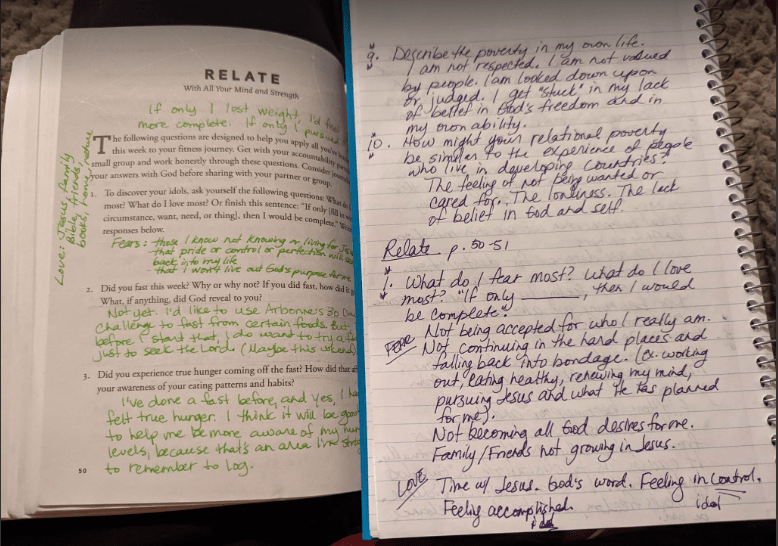 RELATE
With All Your Mind and Strength
If only I lost weight, I'd feel
more complete. If only I pursued
Love: Jesus, family
Bible, friends,
books, home, nature
The following questions are designed to help you apply all you've
this week to your fitness journey. Get with your accountability
small group and work honestly through these questions. Consider
your answers with God before sharing with your partner or group.
1. To discover your idols, ask yourself the following questions: What do
most? What do I love most? Or finish this sentence: "If only [fill in
circumstance, want, need, or thing], then I would be complete."
responses below.
Fears: those I know not knowing or living for Jesus
- that pride or control or perfection will
back into my life
- that I won't live out God's purpose for me
2. Did you fast this week? Why or why not? If you did fast, how did
What, if anything, did God reveal to you?
Not yet. I'd like to use Arbonne's 30 Day
Challenge to fast from certain foods. But,
before I start that, I do want to try a
just to seek the Lord. (Maybe this weekend)
3. Did you experience true hunger coming off the fast? How did that
your awareness of your eating patterns and habits?
I've done a fast before, and yes, I
felt true hunger. I think it will be good
to help me be more aware of my
levels, because that's an area I
to remember to log.
50
9. Describe the poverty in my own life.
I am not respected. I am not valued
by people. I am looked down upon
or judged. I get "stuck" in my lack
of belief in God's freedom and in
my own ability.
10. How might your relational poverty
be similar to the experience of people
who live in developing countries?
The feeling of not being wanted or
cared for. The loneliness. The lack
of belief in God and self.
Relate p. 50-51
1. What do I fear most? What do I love
most? "If only ______, then I would
be complete."
FEAR Not being accepted for who I really am.
Not continuing in the hard places and
falling back into bondage. (ex. working
out, eating healthy, renewing my mind,
pursuing Jesus and what He has planned
for me).
Not becoming all God desires for me.
Family/Friends not growing in Jesus.
LOVE Time w/ Jesus. God's word. Feeling in control.
Feeling accomplished. idol
idol